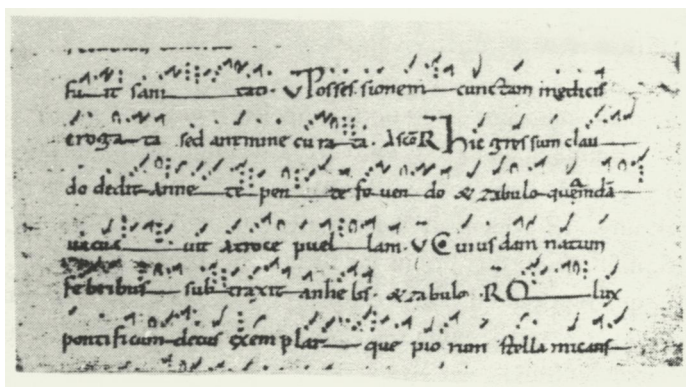 fu it sani tati · V Possessionem cunctam medicis
eroga ta sed cu ra ta · R Hic gressum clau
do dedit Anne te pen te fo ven do & zabulo quemdā
uit atroce puel lam · V Cuius dam natum
febribus sub traxit anhe lis · & zabulo · R O lux
pontificum decus exemplar que pio rum stella micans